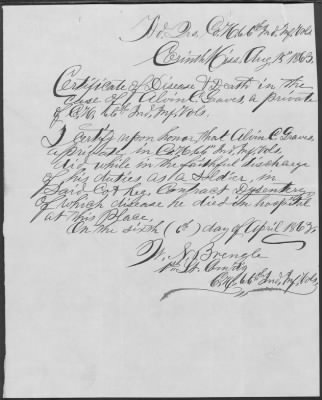 Hd. Qrs. Co. H 66th Ind. Inf. Vols
Corinth Miss. Aug 13th 1863.
Certificate of Disease & Death in the
case of Alvin C. Graves, a private
of Co. H. 66th Ind. Inf. Vols.
I Certify upon honor, that Alvin C. Graves
a private, in Co H 66th Ind. Inf. Vols.
did while in the faithful discharge
of his duties as a Soldier, in
Said Co & Reg. Contract Dysentery
of which disease he died in hospital
at this Place.
On the sixth (6th) day of April 1863.
W. N. Brengle
1st Lt. Comdg
Co. H. 66th Ind. Inf. Vols.